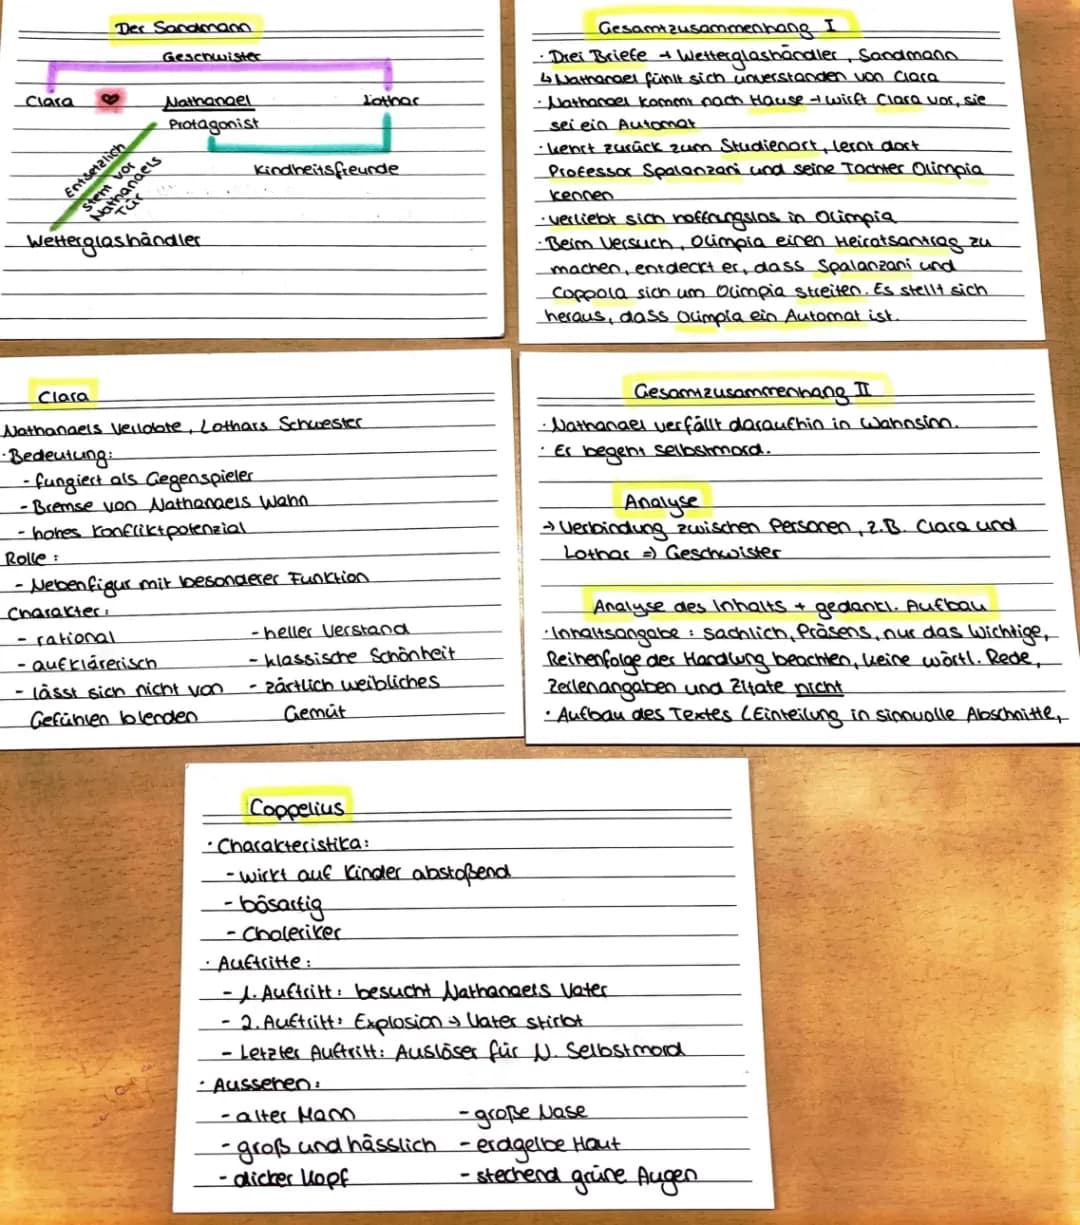 Der Sandmann
Geschwister
Clara Nathanael Lothar
Protagonist
Kindheitsfreunde
Entsetzlich
steht vor
Nathanaels
Tür
Wetterglashändler
Gesamtzusammenhang I
· Drei Briefe → Wetterglashändler, Sandmann
↳ Nathanael fühlt sich unverstanden von Clara
· Nathanael kommt nach Hause → wirft Clara vor, sie
sei ein Automat
· kehrt zurück zum Studienort, lernt dort
Professor Spalanzani und seine Tochter Olimpia
kennen
· verliebt sich hoffnungslos in Olimpia
· Beim Versuch, Olimpia einen Heiratsantrag zu
machen, entdeckt er, dass Spalanzani und
Coppola sich um Olimpia streiten. Es stellt sich
heraus, dass Olimpia ein Automat ist.
Clara
Nathanaels Verlobte, Lothars Schwester
· Bedeutung:
- fungiert als Gegenspieler
- Bremse von Nathanaels Wahn
- hohes Konfliktpotenzial
Rolle:
- Nebenfigur mit besonderer Funktion
Charakter:
- rational - heller Verstand
- aufklärerisch - klassische Schönheit
- lässt sich nicht von - zärtlich weibliches
Gefühlen blenden Gemüt
Gesamtzusammenhang II
· Nathanael verfällt daraufhin in Wahnsinn.
· Er begeht Selbstmord.
Analyse
→ Verbindung zwischen Personen, z.B. Clara und
Lothar => Geschwister
Analyse des Inhalts + gedankl. Aufbau
· Inhaltsangabe: sachlich, Präsens, nur das Wichtige,
Reihenfolge der Handlung beachten, keine wörtl. Rede,
Zeilenangaben und Zitate nicht
· Aufbau des Textes (Einteilung in sinnvolle Abschnitte,
Coppelius
· Charakteristika:
- wirkt auf Kinder abstoßend
- bösartig
- Choleriker
· Auftritte:
- 1. Auftritt: besucht Nathanaels Vater
- 2. Auftritt: Explosion → Vater stirbt
- Letzter Auftritt: Auslöser für N. Selbstmord
· Aussehen:
- alter Mann - große Nase
- groß und hässlich - erdgelbe Haut
- dicker Kopf - stechend grüne Augen